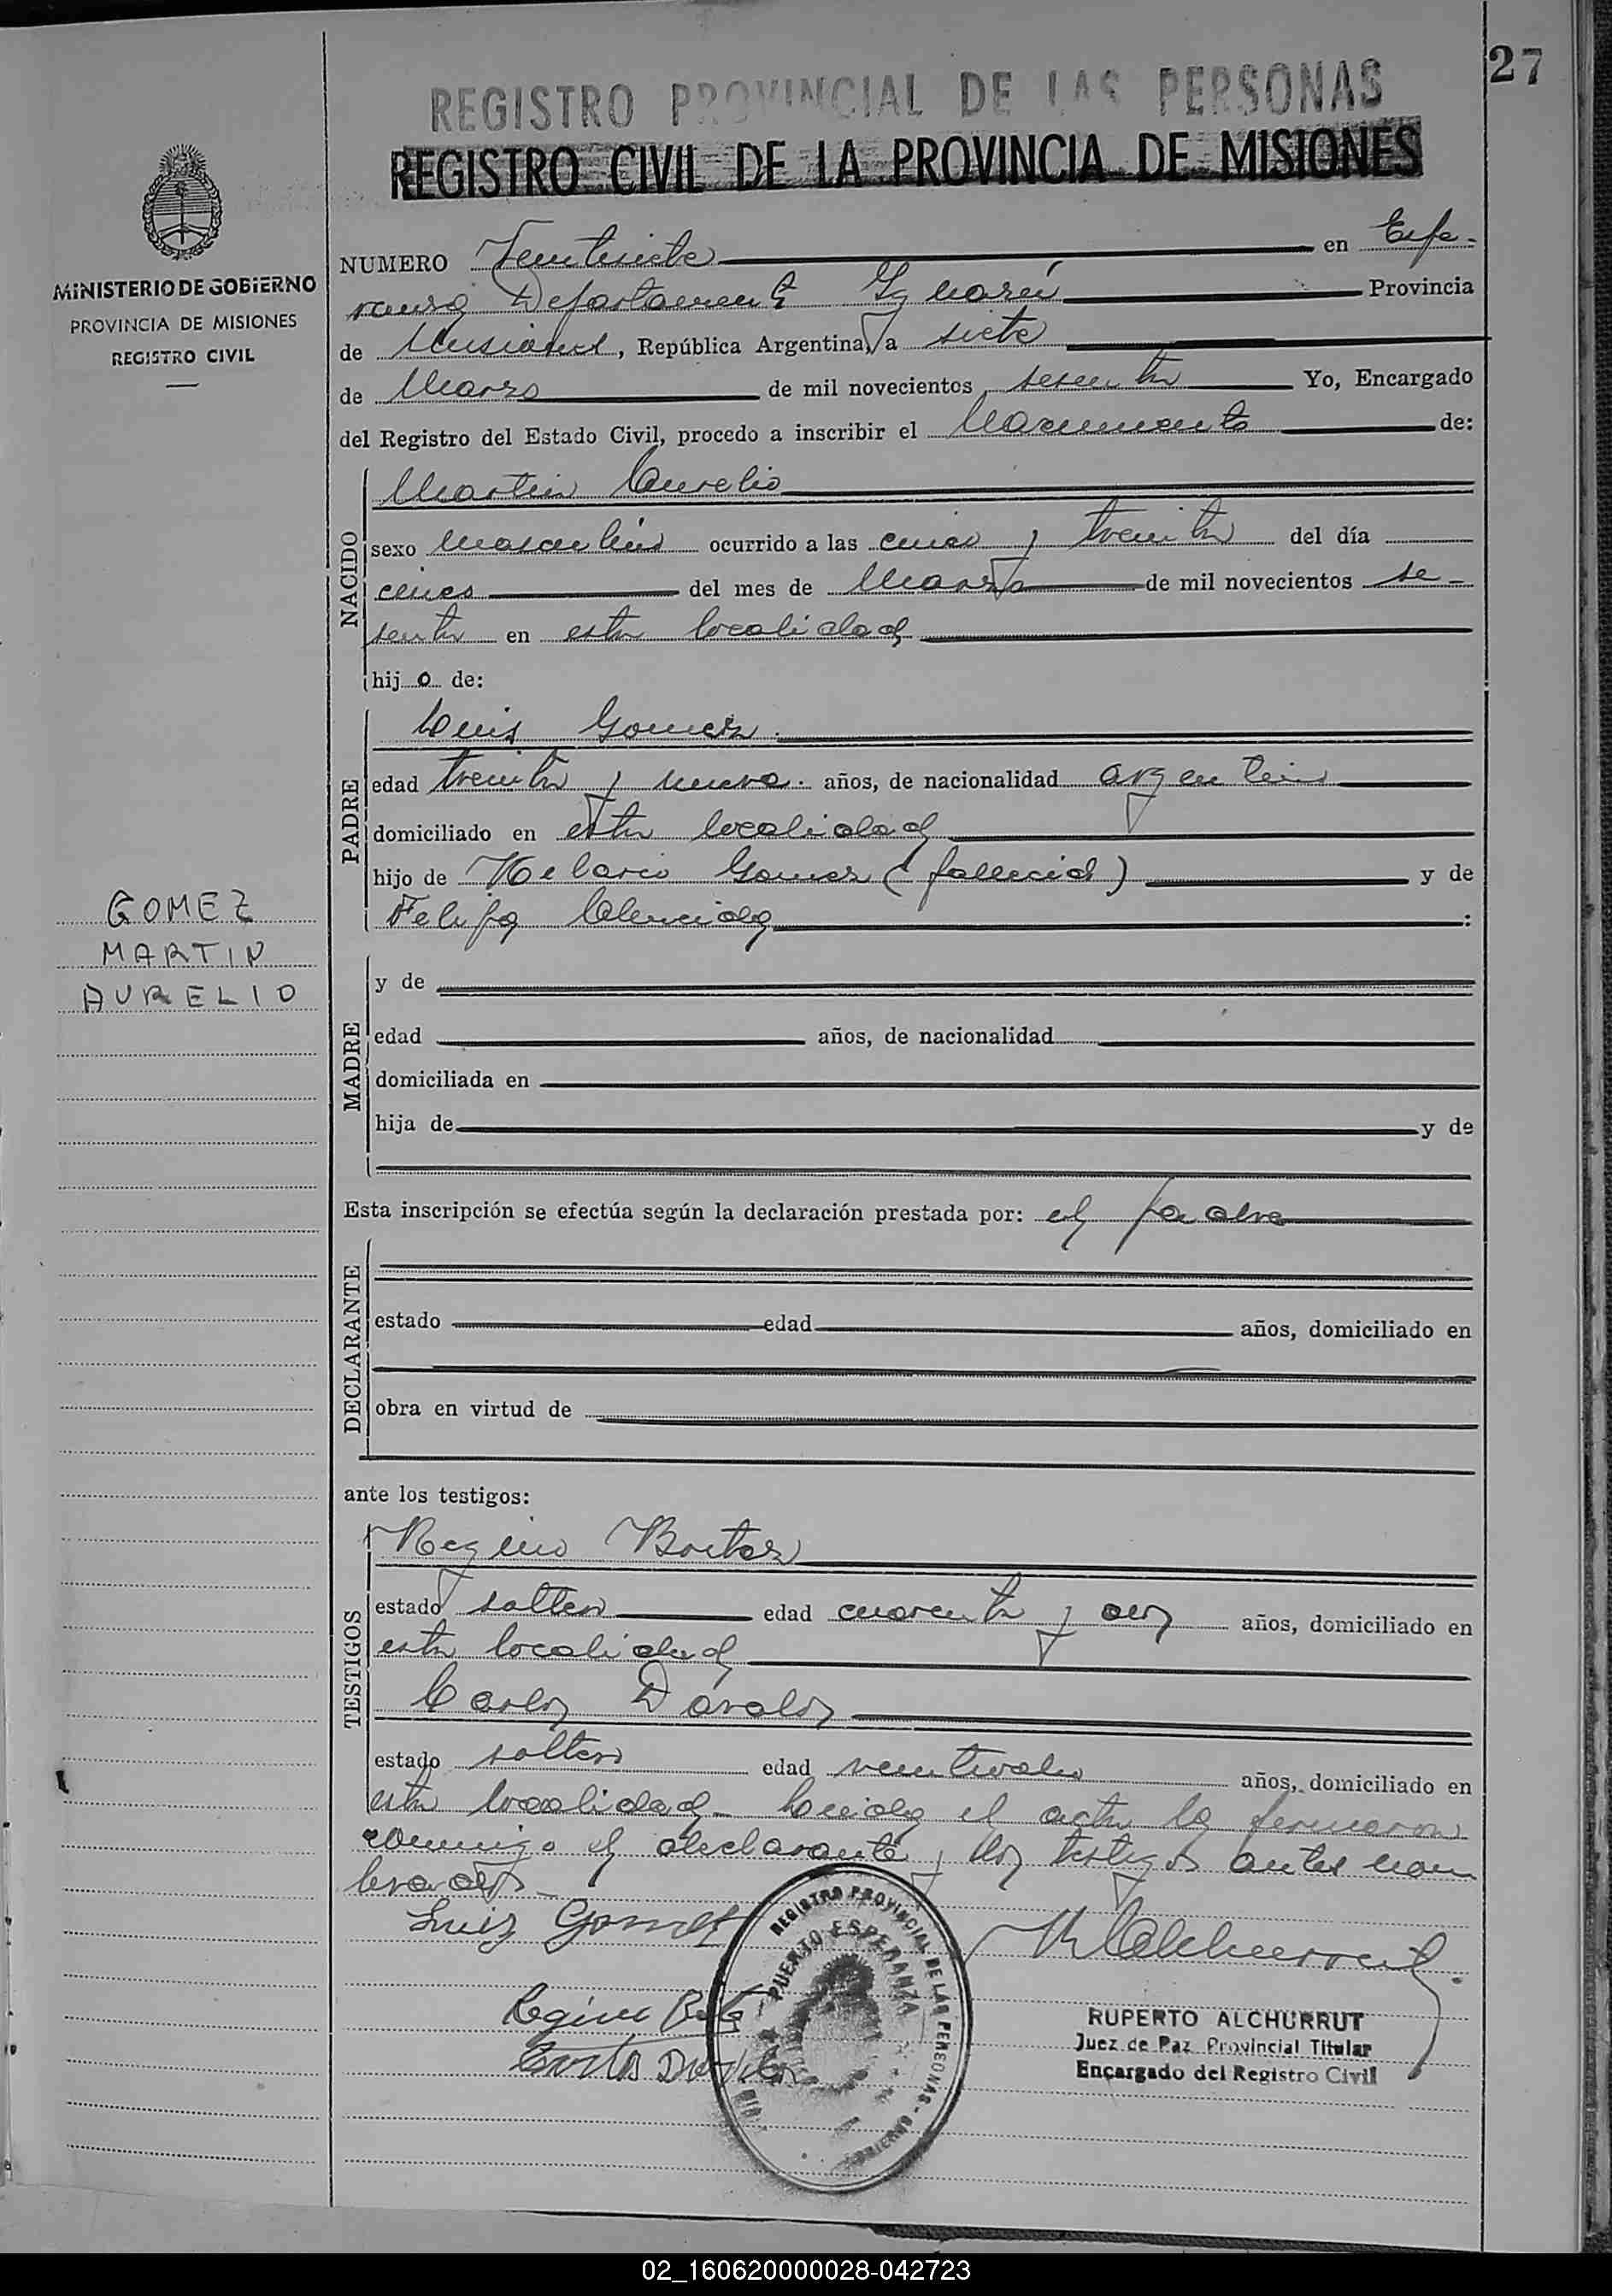 27
REGISTRO PROVINCIAL DE LAS PERSONAS
REGISTRO CIVIL DE LA PROVINCIA DE MISIONES
MINISTERIO DE GOBIERNO
PROVINCIA DE MISIONES
REGISTRO CIVIL
NUMERO Veintisiete en Espe-
ranza Departamento Iguazú Provincia
de Misiones, República Argentina, a siete
de Marzo de mil novecientos sesenta Yo, Encargado
del Registro del Estado Civil, procedo a inscribir el Nacimiento de:
NACIDO
Martin Aurelio
sexo masculino ocurrido a las cinco y treinta del día
cinco del mes de Marzo de mil novecientos se-
senta en esta localidad
hijo de:
PADRE
Luis Gomez
edad treinta y nueve años, de nacionalidad argentino
domiciliado en esta localidad
hijo de Gomez (fallecido) y de
Felipa :
GOMEZ
MARTIN
AURELIO
MADRE
y de
edad años, de nacionalidad
domiciliada en
hija de y de
Esta inscripción se efectúa según la declaración prestada por: el padre
DECLARANTE
estado edad años, domiciliado en
obra en virtud de
ante los testigos:
TESTIGOS
Regino
estado soltero edad cuarenta y dos años, domiciliado en
esta localidad
Carlos Dávalos
estado soltero edad años, domiciliado en
esta localidad- Leida el acta la firmaron
conmigo el declarante y los testigos antes nom
brados-
Luiz Gomez
Carlos
REGISTRO PROVINCIAL DE LAS PERSONAS
PUERTO ESPERANZA
RUPERTO ALCHURRUT
Juez de Paz Provincial Titular
Encargado del Registro Civil
02_160620000028-042723